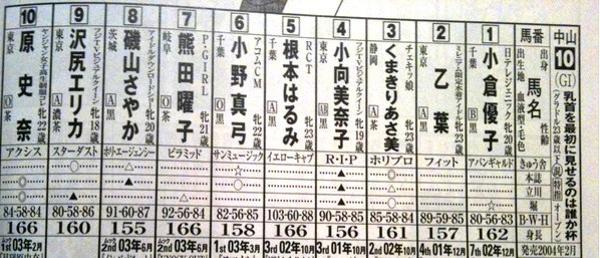 中山
10
(GI)
乳首を最初に見せるのは誰か杯
発売2004年2月
馬番
出身
出生地
馬名
血液型・毛色
性齢
きゅう舎
本誌
立川
堀
B-W-H
身長
1
日テレジェニック
千葉
小倉優子
B
黒
牝20歳
アバンギャルド
☆
80-56-83
162
7th 02年12月
2
ミニテル限定水着アイドル
東京
乙葉
O
黒
牝23歳
フィット
89-59-83
157
4th 01年12月
3
チェキッ娘
静岡
くまきりあさ美
A
茶
牝23歳
ホリプロ
85-56-84
161
2nd 02年10月
4
フジTVビジュアルクイーン
東京
小向美奈子
AB
黒
牝19歳
R・I・P
▲
▲
▲
90-56-84
156
3rd 01年10月
5
RCT
千葉
根本はるみ
O
黒
牝23歳
イエローキャブ
103-60-88
165
3rd 02年10月
6
アコムCM
千葉
小野真弓
O
黒
牝22歳
サンミュージック
☆
82-56-85
158
1st 03年3月
7
P・GIRL
岐阜
熊田曜子
O
茶
牝21歳
ピラミッド
92-56-84
166
8
アイドルダウンロードショー
茨城
磯山さやか
A
黒
牝20歳
91-60-87
155
2nd 03年6月
9
フジTVビジュアルクイーン
東京
沢尻エリカ
A
濃茶
牝18歳
スターダスト
80-58-86
160
10
ヤンジャン女子高生制服コレ
東京
原史奈
O
茶
牝22歳
アクシス
84-58-84
166
1st 03年2月